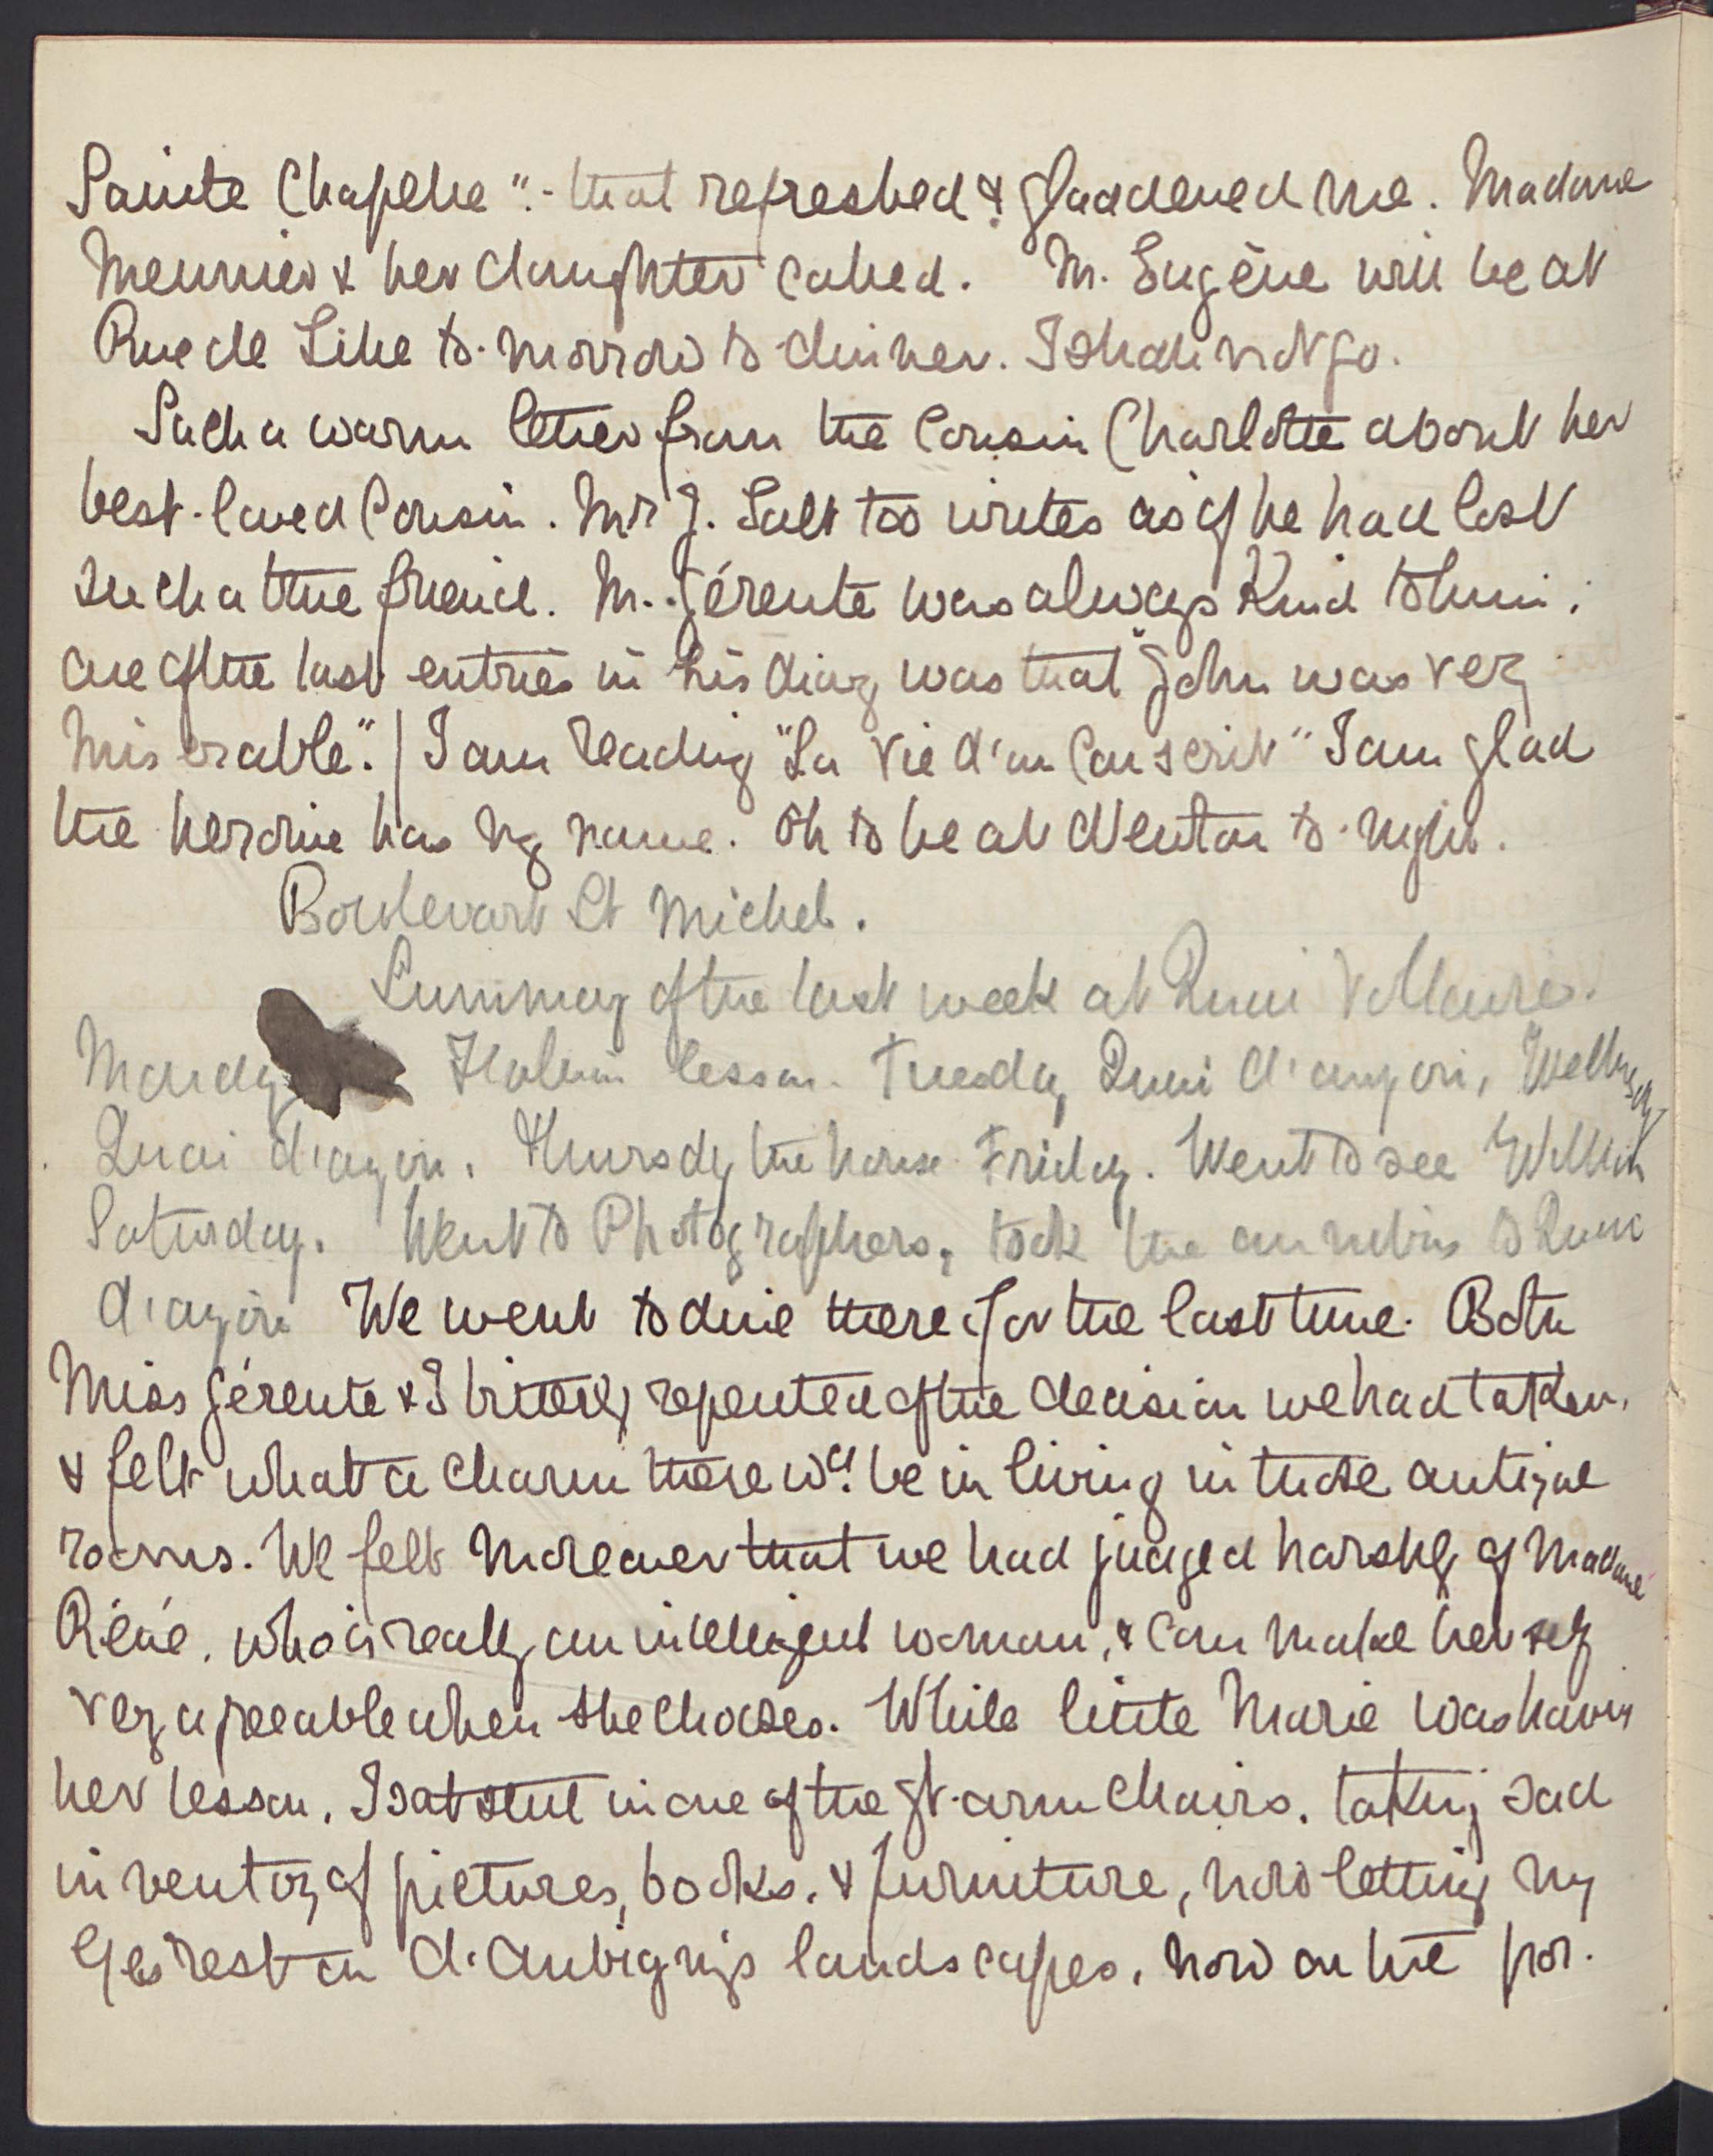 Sainte Chapelle".- that refreshed & gladdened me. Madame
Meunier & her daughter called. M. Eugène will be at
Rue de Lille to-morrow to dinner. I shall not go.
Such a warm letter from the Cousin Charlotte about her
best-loved Cousin. Mr J. Salt too writes as if he had lost
such a true friend. M. Gérente was always kind to him;
one of the last entries in his diary was that "John was very
miserable". | I am reading "La Vie d'un Conscrit" I am glad
the heroine has my name. Oh to be at Newton to-night.
Boulevart St Michel.
Summary of the last week at Quai Voltaire.
Monday Italian lesson. Tuesday, Quai d'anjou, Wednesday
Quai d'anjou. Thursday the house Friday. Went to see
Saturday. Went to Photographers, took the to Quai
d'anjou We went to dine there for the last time. Both
Miss Gérente & I bitterly repented of the decision we had taken,
& felt what a charm there wd. be in living in those antique
rooms. We felt moreover that we had judged harshly of Madame
Réné, who is really an intelligent woman, & can make herself
very agreeable when she chooses. While little Marie was having
her lesson, I sat still in one of the gt. arm chairs, taking sad
inventory of pictures, books, & furniture, now letting my
eyes rest on d'Aubigny's landscapes, now on the por-